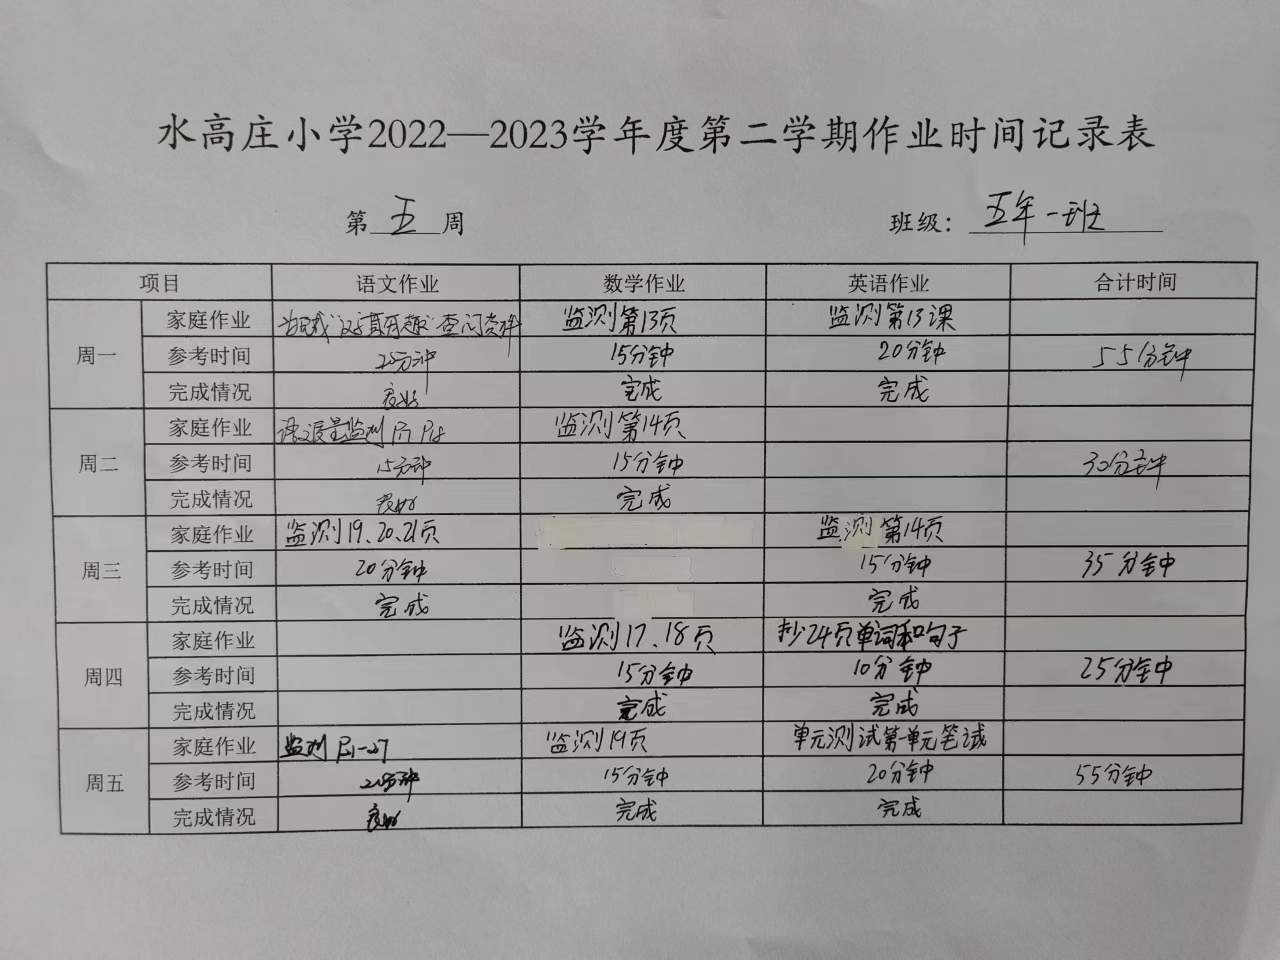 水高庄小学2022—2023学年度第二学期作业时间记录表
第 五 周 班级： 五年一班
项目 语文作业 数学作业 英语作业 合计时间
周一
家庭作业 查阅资料 监测第13页 监测第13课
参考时间 20分钟 15分钟 20分钟 55分钟
完成情况 良好 完成 完成
周二
家庭作业 语文质量监测 监测第14页
参考时间 15分钟 15分钟 30分钟
完成情况 良好 完成
周三
家庭作业 监测19、20、21页 监测第14页
参考时间 20分钟 15分钟 35分钟
完成情况 完成 完成
周四
家庭作业 监测17、18页 抄24页单词和句子
参考时间 15分钟 10分钟 25分钟
完成情况 完成 完成
周五
家庭作业 监测 监测19页 单元测试第一单元笔试
参考时间 20分钟 15分钟 20分钟 55分钟
完成情况 良好 完成 完成